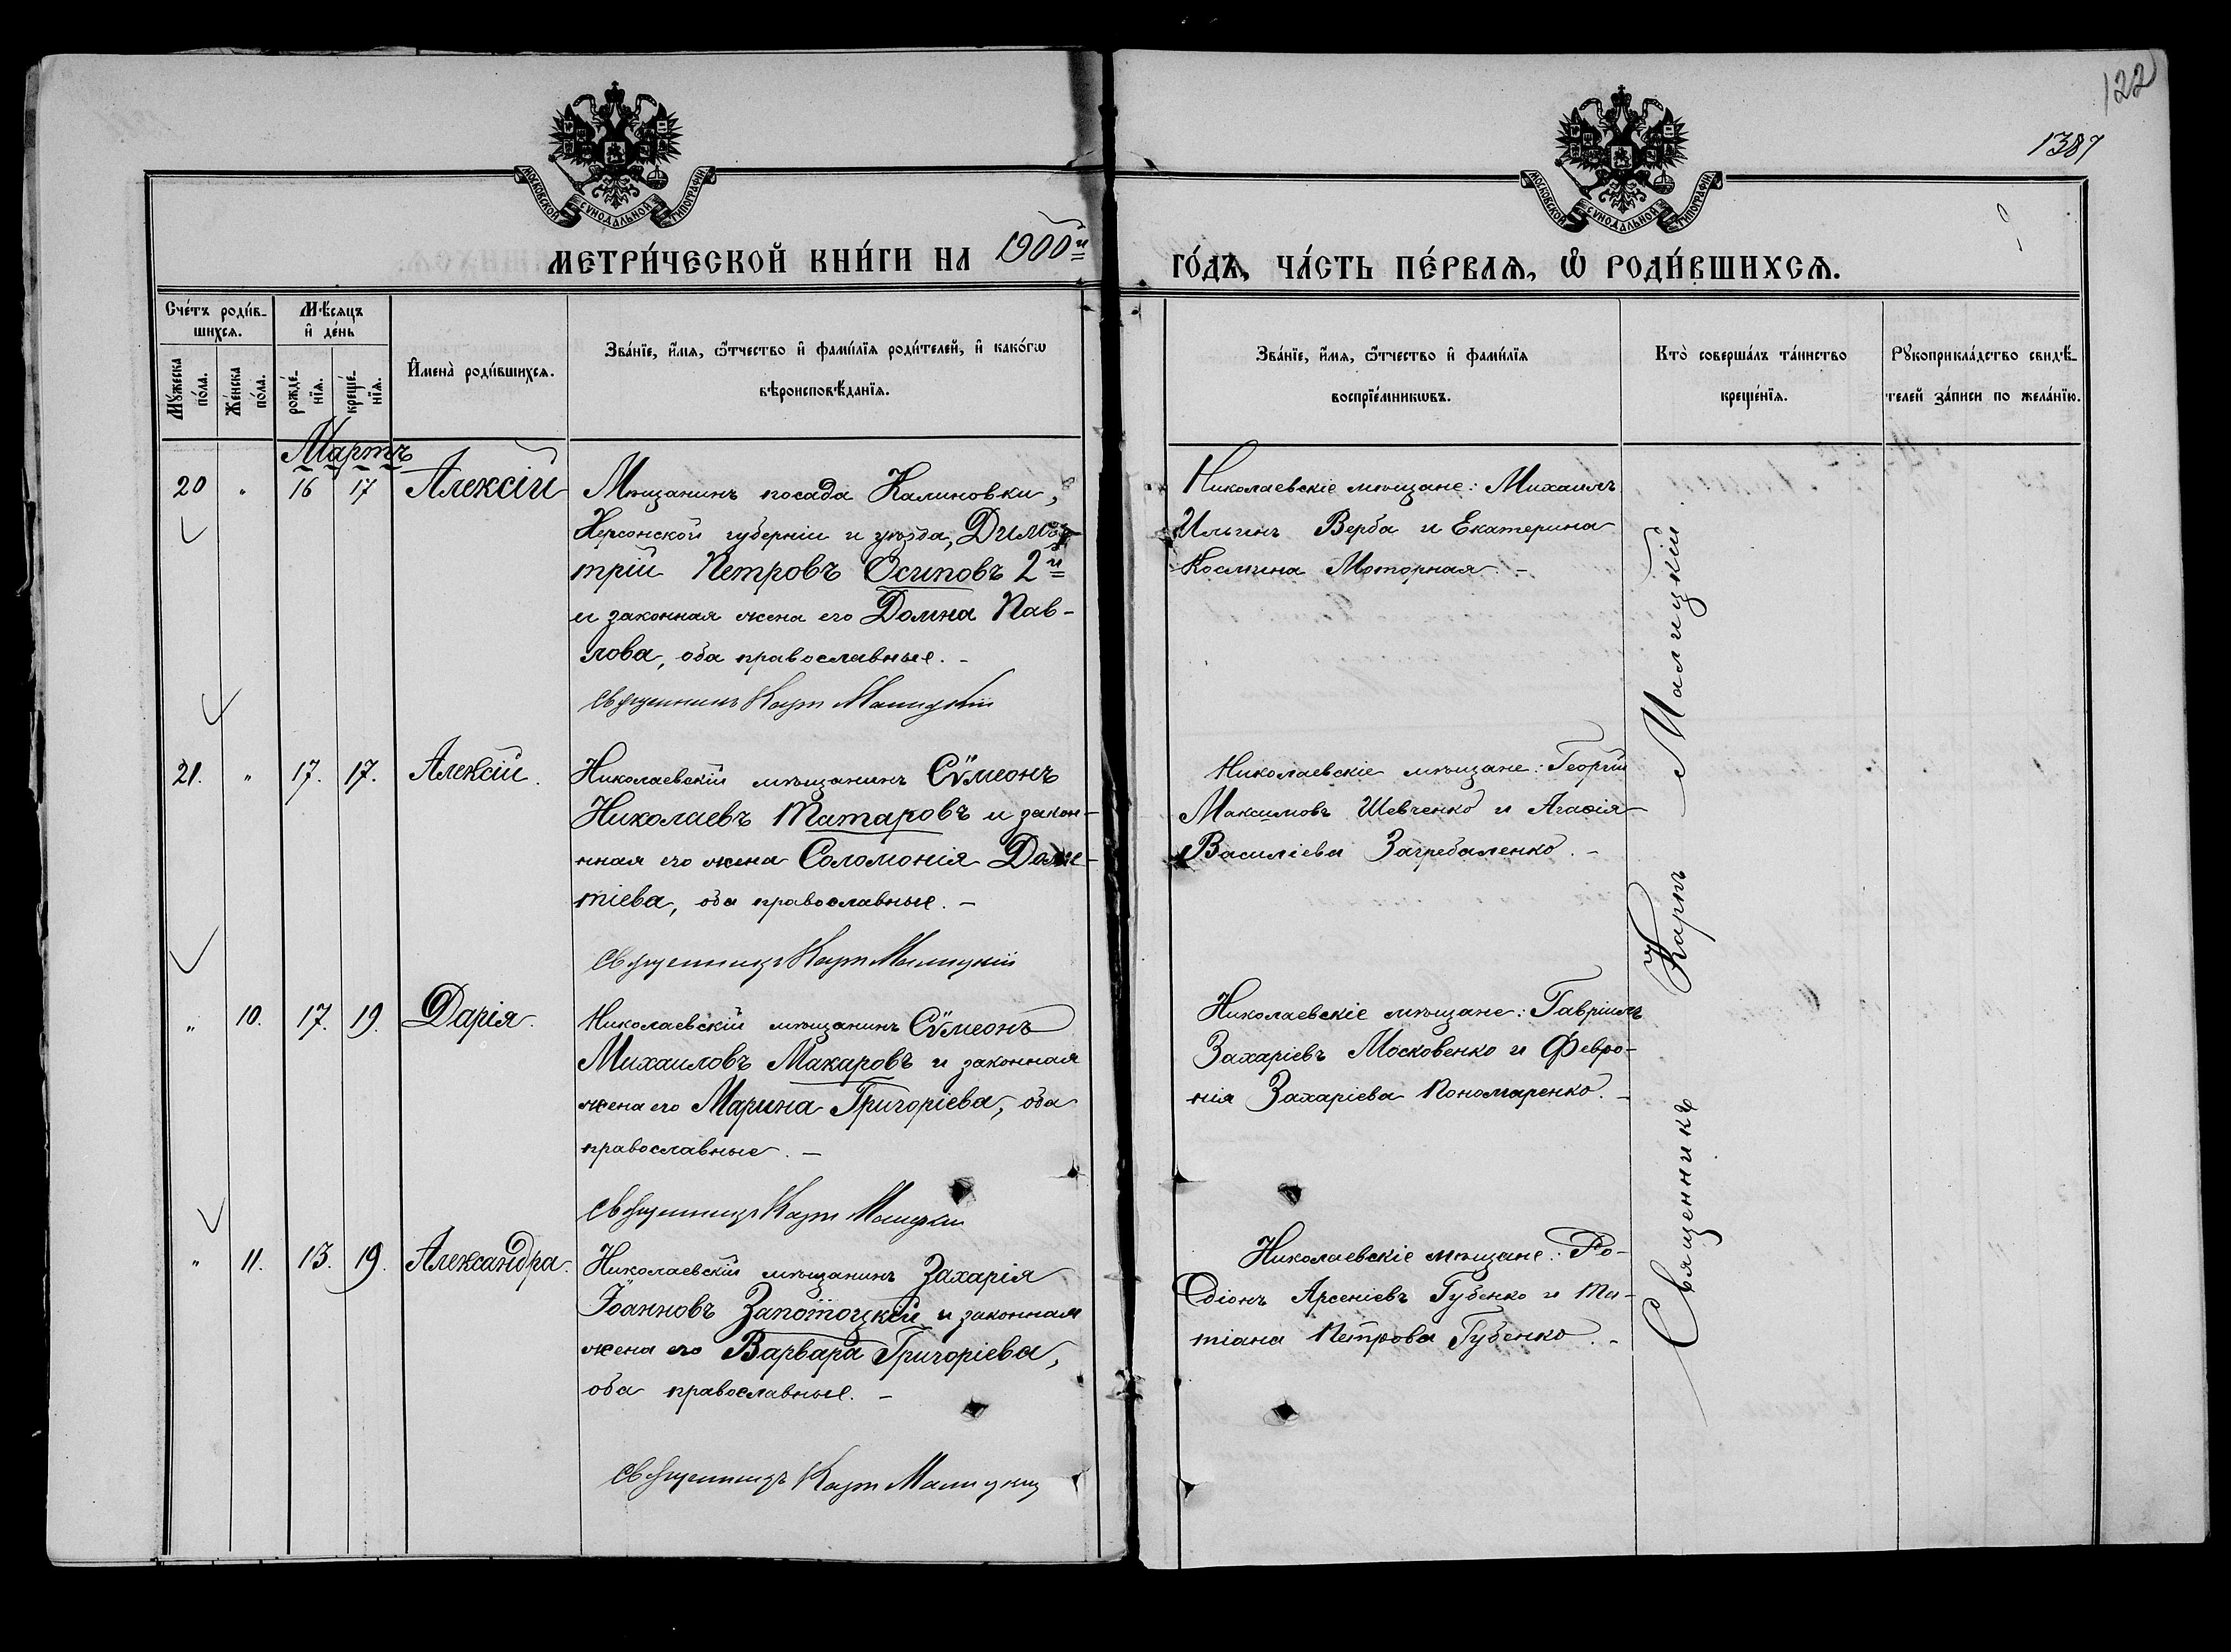 122
1387
МОСКОВСКОЙ СУНОДАЛЬНОЙ ТИПОГРАФІИ
МОСКОВСКОЙ СУНОДАЛЬНОЙ ТИПОГРАФІИ
МЕТРИ́ЧЕСКОЙ КНИ́ГИ НА 1900й
ГО́ДЪ, ЧА́СТЬ ПЕ́РВАѦ, Ѡ҆ РОДИ́ВШИХСѦ.
Сче́тъ роди́в-
шихсѧ.
Мꙋ́жеска по́ла.
Же́нска по́ла.
Мѣ́сѧцъ
и҆ де́нь
рожде́-
нїѧ.
креще́-
нїѧ.
И҆мена̀ роди́вшихсѧ.
Зва́нїе, и҆́мѧ, ѻ҆́тчество и҆ фами́лїѧ роди́телей, и҆ како́гѡ
вѣроисповѣ́данїѧ.
Зва́нїе, и҆́мѧ, ѻ҆́тчество и҆ фами́лїѧ
воспрїе́мникѡвъ.
Кто̀ соверша́лъ та́инство
креще́нїѧ.
Рꙋкоприкла́дство свидѣ́-
телей за́писи по жела́нїю.
Мартъ
20 " 16 17 Алексій
Мѣщанинъ посада Калиновки,
Херсонской губерніи и уѣзда, Дими-
трій Петровъ Осиповъ 2й
и законная жена его Домна Пав-
лова, оба православные. -
Священникъ Карп Малицкій
Николаевскіе мѣщане: Михаилъ
Ильинъ Верба и Екатерина
Космина Моторная. -
21. " 17. 17. Алексій.
Николаевскій мѣщанинъ Сѷмеонъ
Николаевъ Татаровъ и закон-
ная его жена Соломонія Доме-
тіева, оба православные. -
Священникъ Карп Малицкій
Николаевскіе мѣщане: Георгій
Максимовъ Шевченко и Агафія
Василіева Загребаленко. -
" 10. 17. 19. Дарія.
Николаевскій мѣщанинъ Сѷмеонъ
Михаиловъ Макаровъ и законная
жена его Марина Григоріева, оба
православные. -
Священникъ Карп Малицкій
Николаевскіе мѣщане: Гавріилъ
Захаріевъ Московенко и Февро-
нія Захаріева Пономаренко. -
" 11. 13. 19. Александра.
Николаевскій мѣщанинъ Захарія
Іоанновъ Запотоцкій и законная
жена его Варвара Григоріева,
оба православные. -
Священникъ Карп Малицкій
Николаевскіе мѣщане: Ро-
діонъ Арсеніевъ Губенко и Та-
тіана Петрова Губенко. -
Священникъ Карпъ Малицкій.